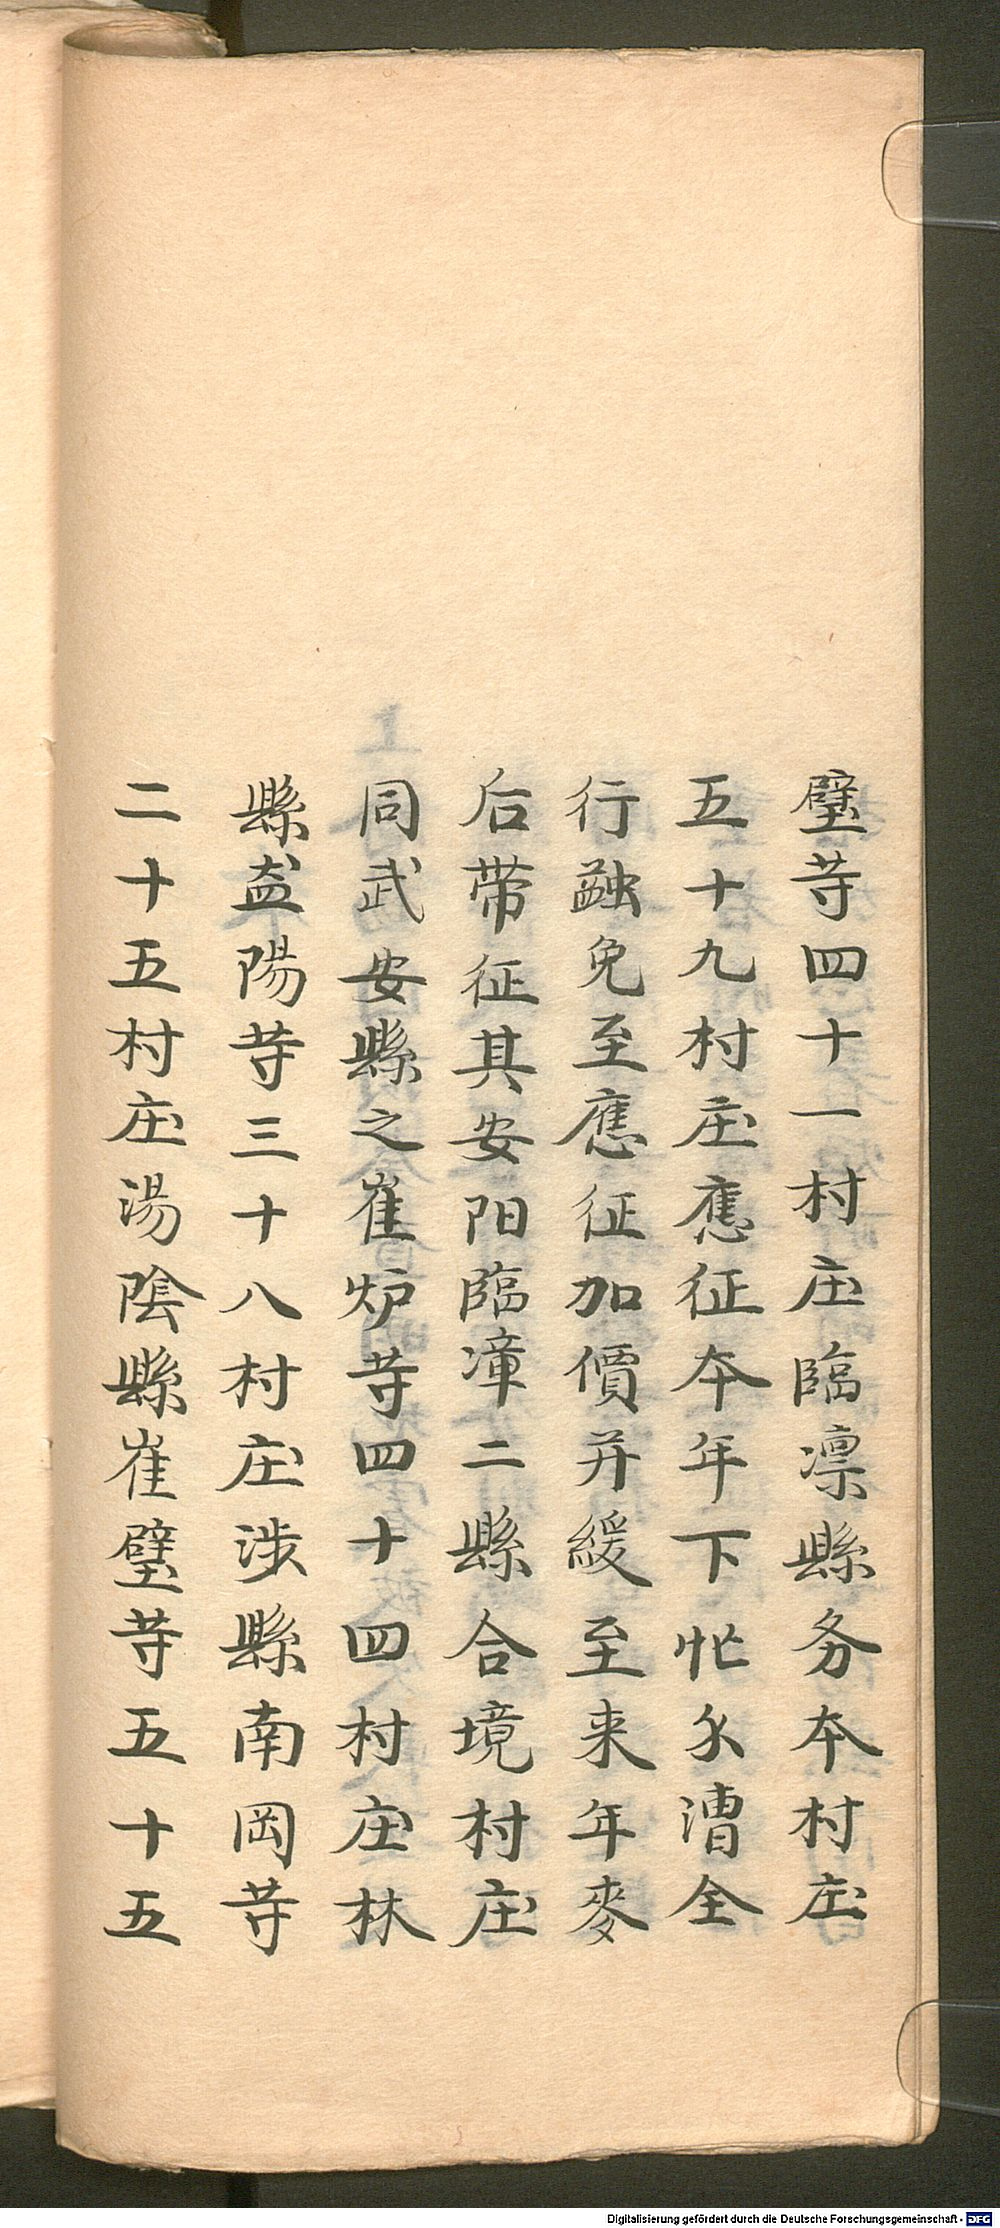 璧䓁四十一村庄臨凛縣务本村庄
五十九村庄應征本年下忙尔漕全
行蠲免至應征加價并緩至来年麥
后带征其安阳臨漳二縣合境村庄
同武安縣之崔炉䓁四十四村庄林
縣盆陽䓁三十八村庄涉縣南岡䓁
二十五村庄湯陰縣崔璧䓁五十五
Digitalisierung gefördert durch die Deutsche Forschungsgemeinschaft - DFG